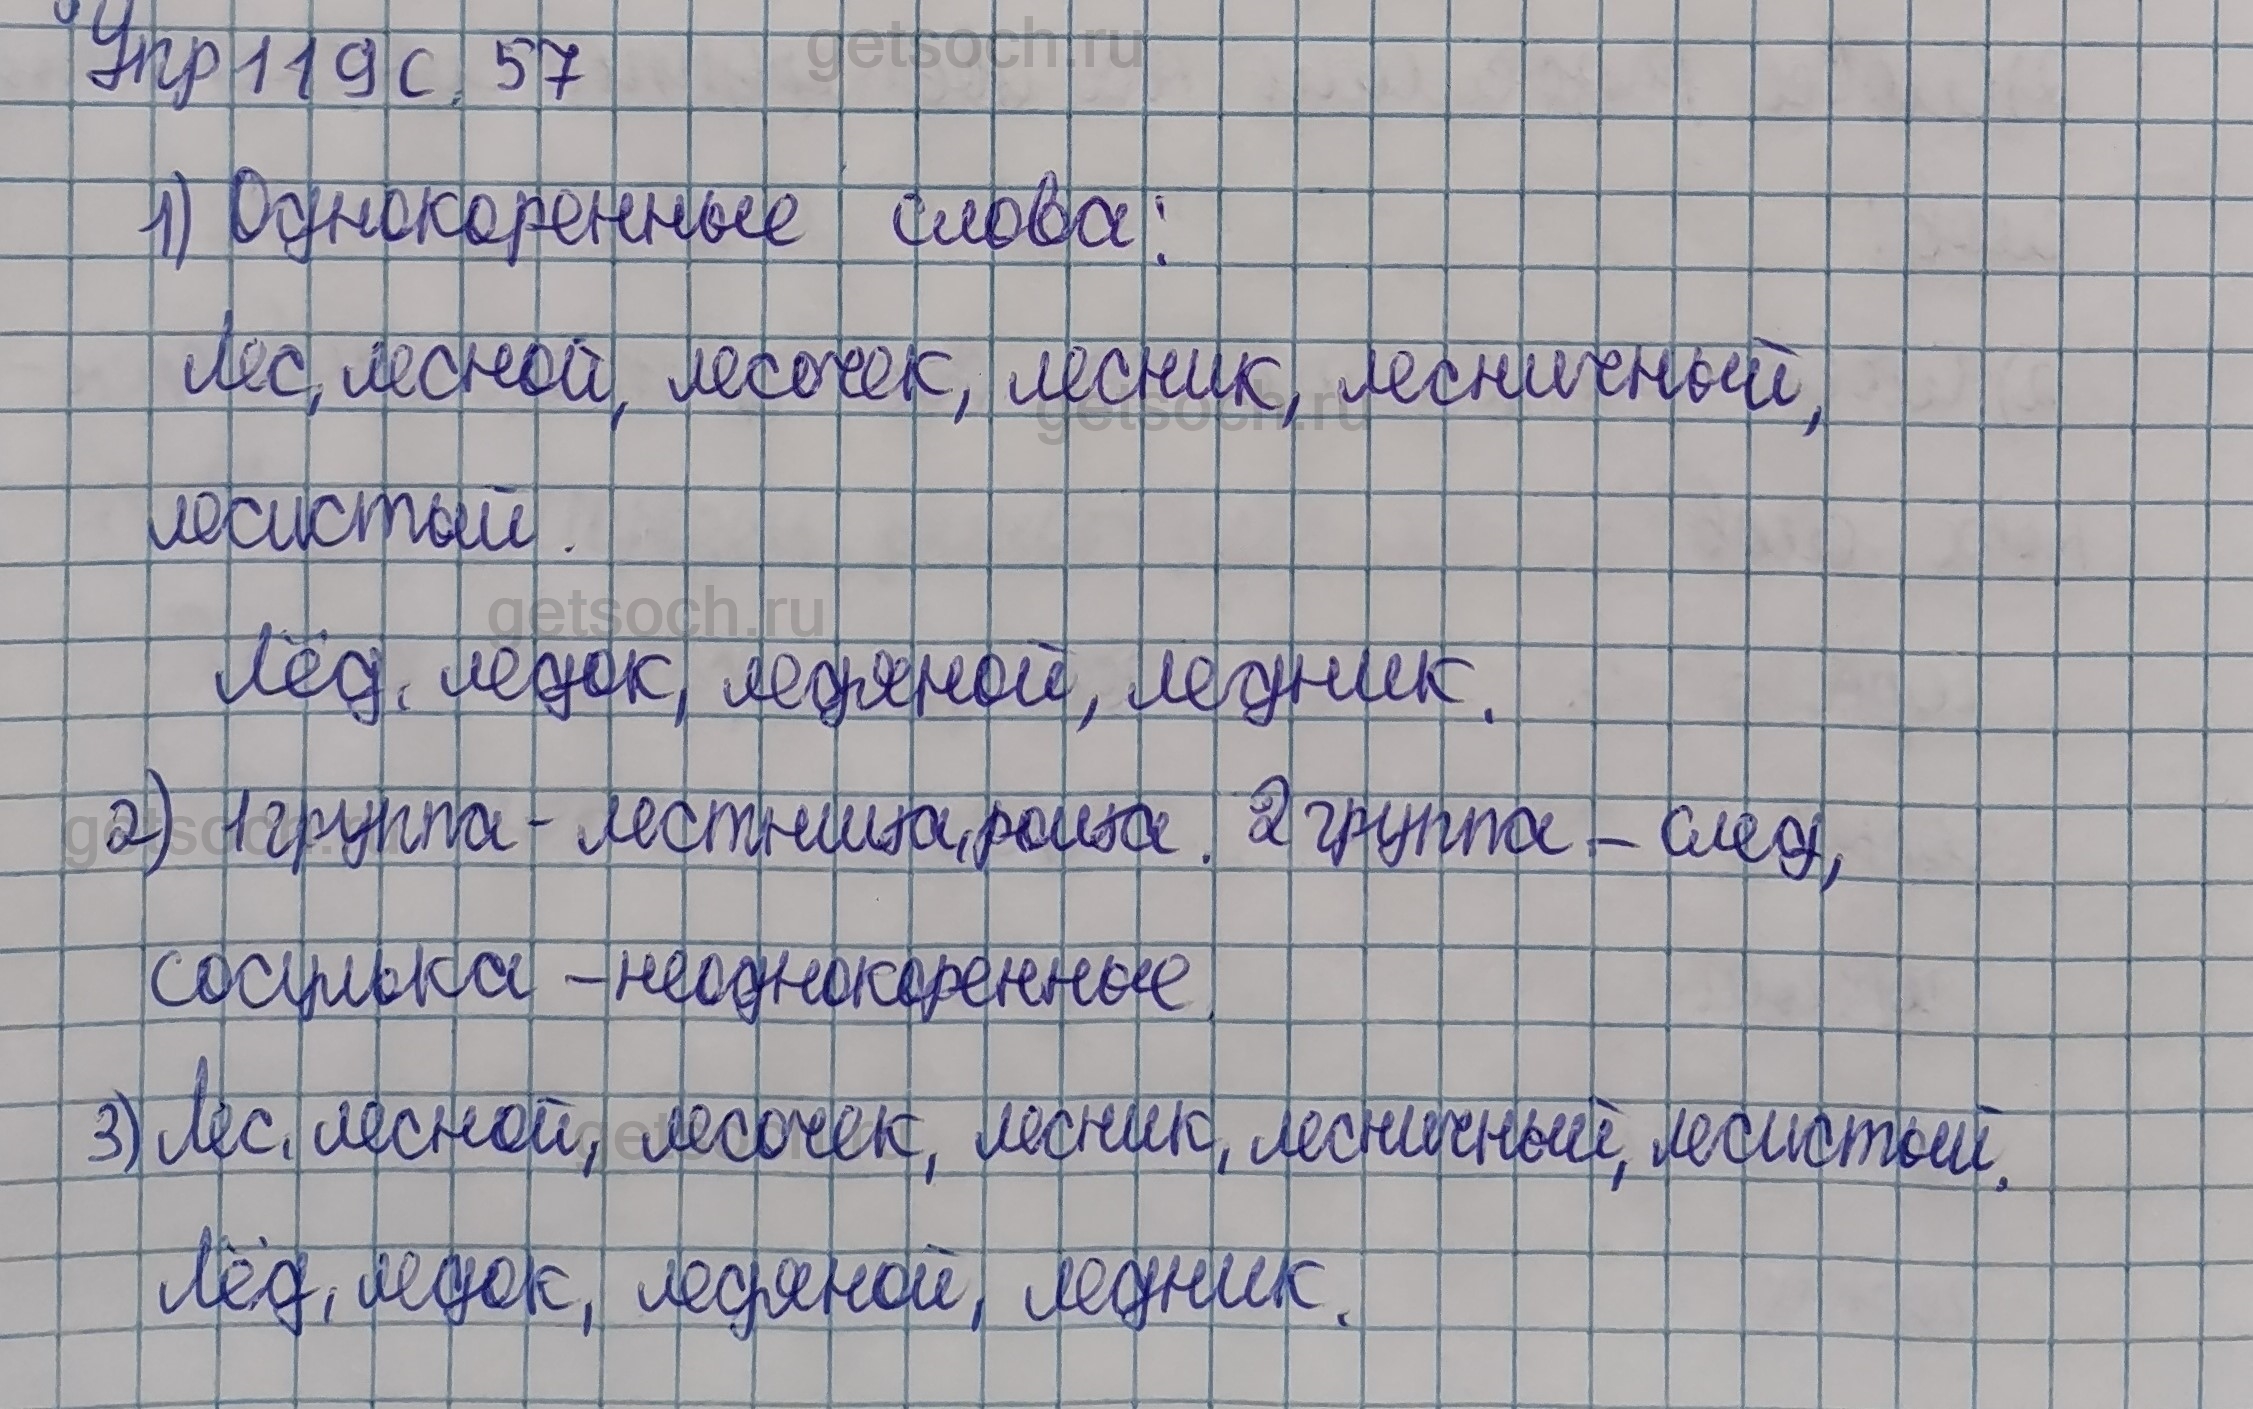 getsoch.ru
Упр 119 с. 57
1) Однокоренные слова:
Лес, лесной, лесочек, лесник, лесничный,
getsoch.ru
лесистый.
getsoch.ru
Лёд, ледок, ледяной, ледник.
2) 1 группа - лестница, роща. 2 группа - след,
getsoch.ru
сосулька - неоднокоренные.
3) Лес, лесной, лесочек, лесник, лесничный, лесистый.
getsoch.ru
Лёд, ледок, ледяной, ледник.